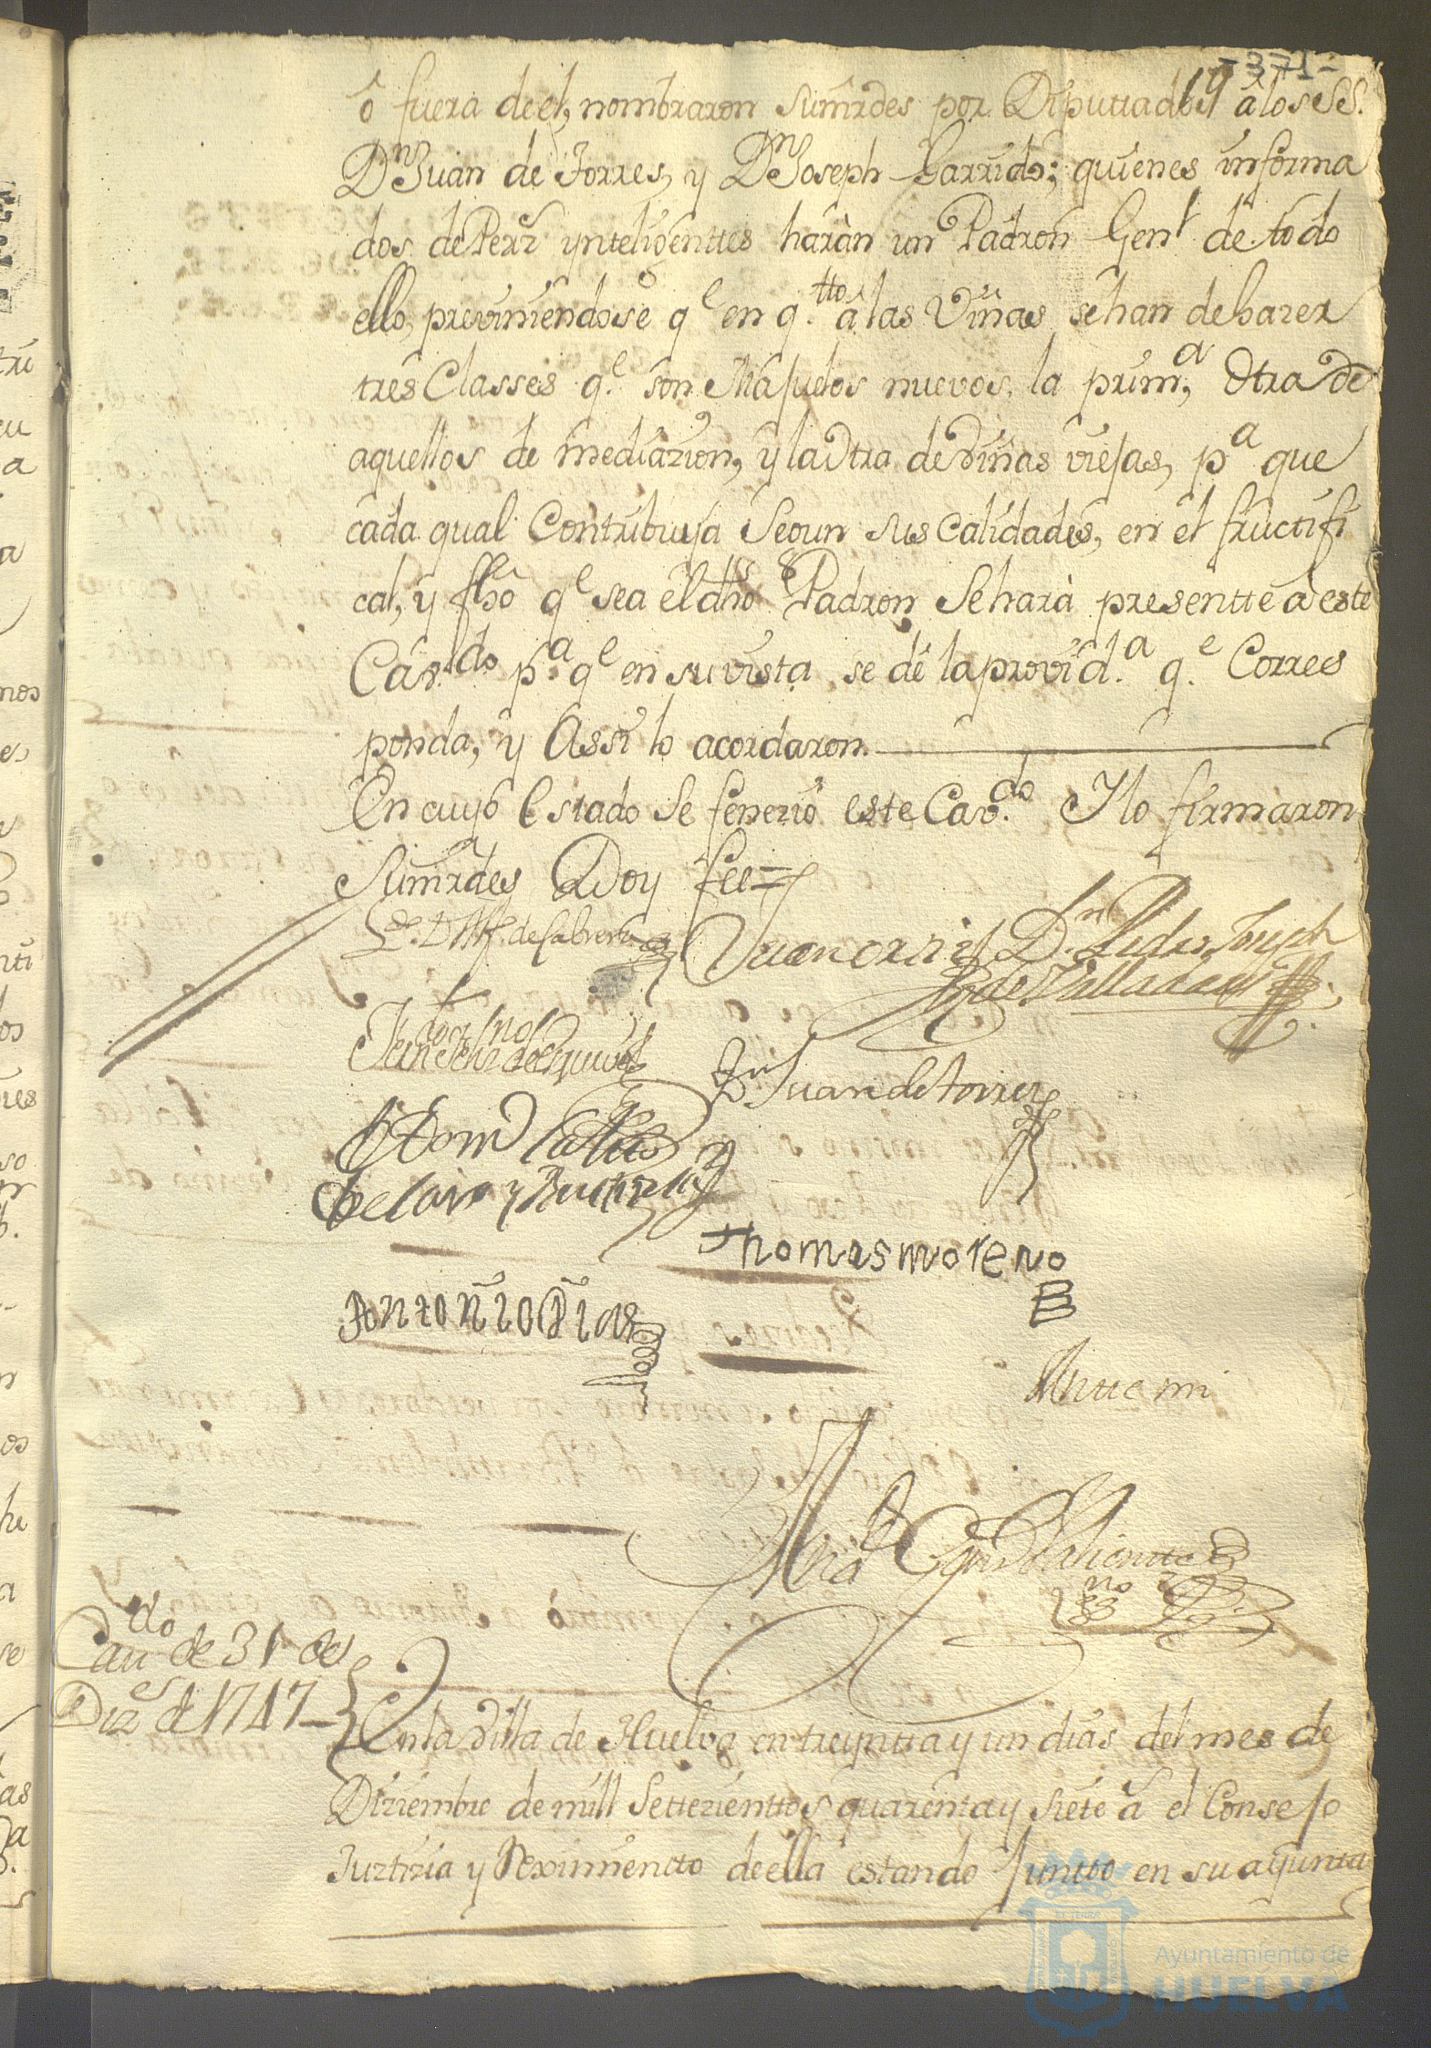 - 371 -
19
ô fuera de el, nombraron sumrdes por Diputtados â los SS.
Dn Juan de Torres, y Dn Joseph Garrido; quienes informa
dos de Pers ynteligenttes haràn un Padron Genl de todo
ello, previniendose qe en q.tto â las Viñas se han de hazer
tres Classes qe son Majuelos nuevos, la prim.a Otra de
aquellos de mediazion, y la Otra de Viñas viejas, pa que
cada qual Contribuya Segun sus Calidades, en el fructifi
cal, y fho qe sea el dho Padron Se harà presentte à este
Cav.do p.a qe en su vista se dé la provid.a qe Corres
ponda, y Assi lo acordaron.
En cuyo Estado Se fenezio este Cav.do Y lo firmaron
Sumrdes Doy fee =
de Cabrera
Juan ortiz
Dn Pedro Joseph
de Valladares
de Esquivel
Dn Juan de torres
Thomas moreno
Antoñio Dias
Antte mi
Valientte
no
Caudo de 31 de
Dizes de 1747
En la Villa de Huelva en treyntta y un dias del mes de
Diziembre de mill Settezienttos quarenta y siete as el Consejo
Justizia y Reximientto de ella estando Juntto en su ayunta
Ayuntamiento de
HUELVA